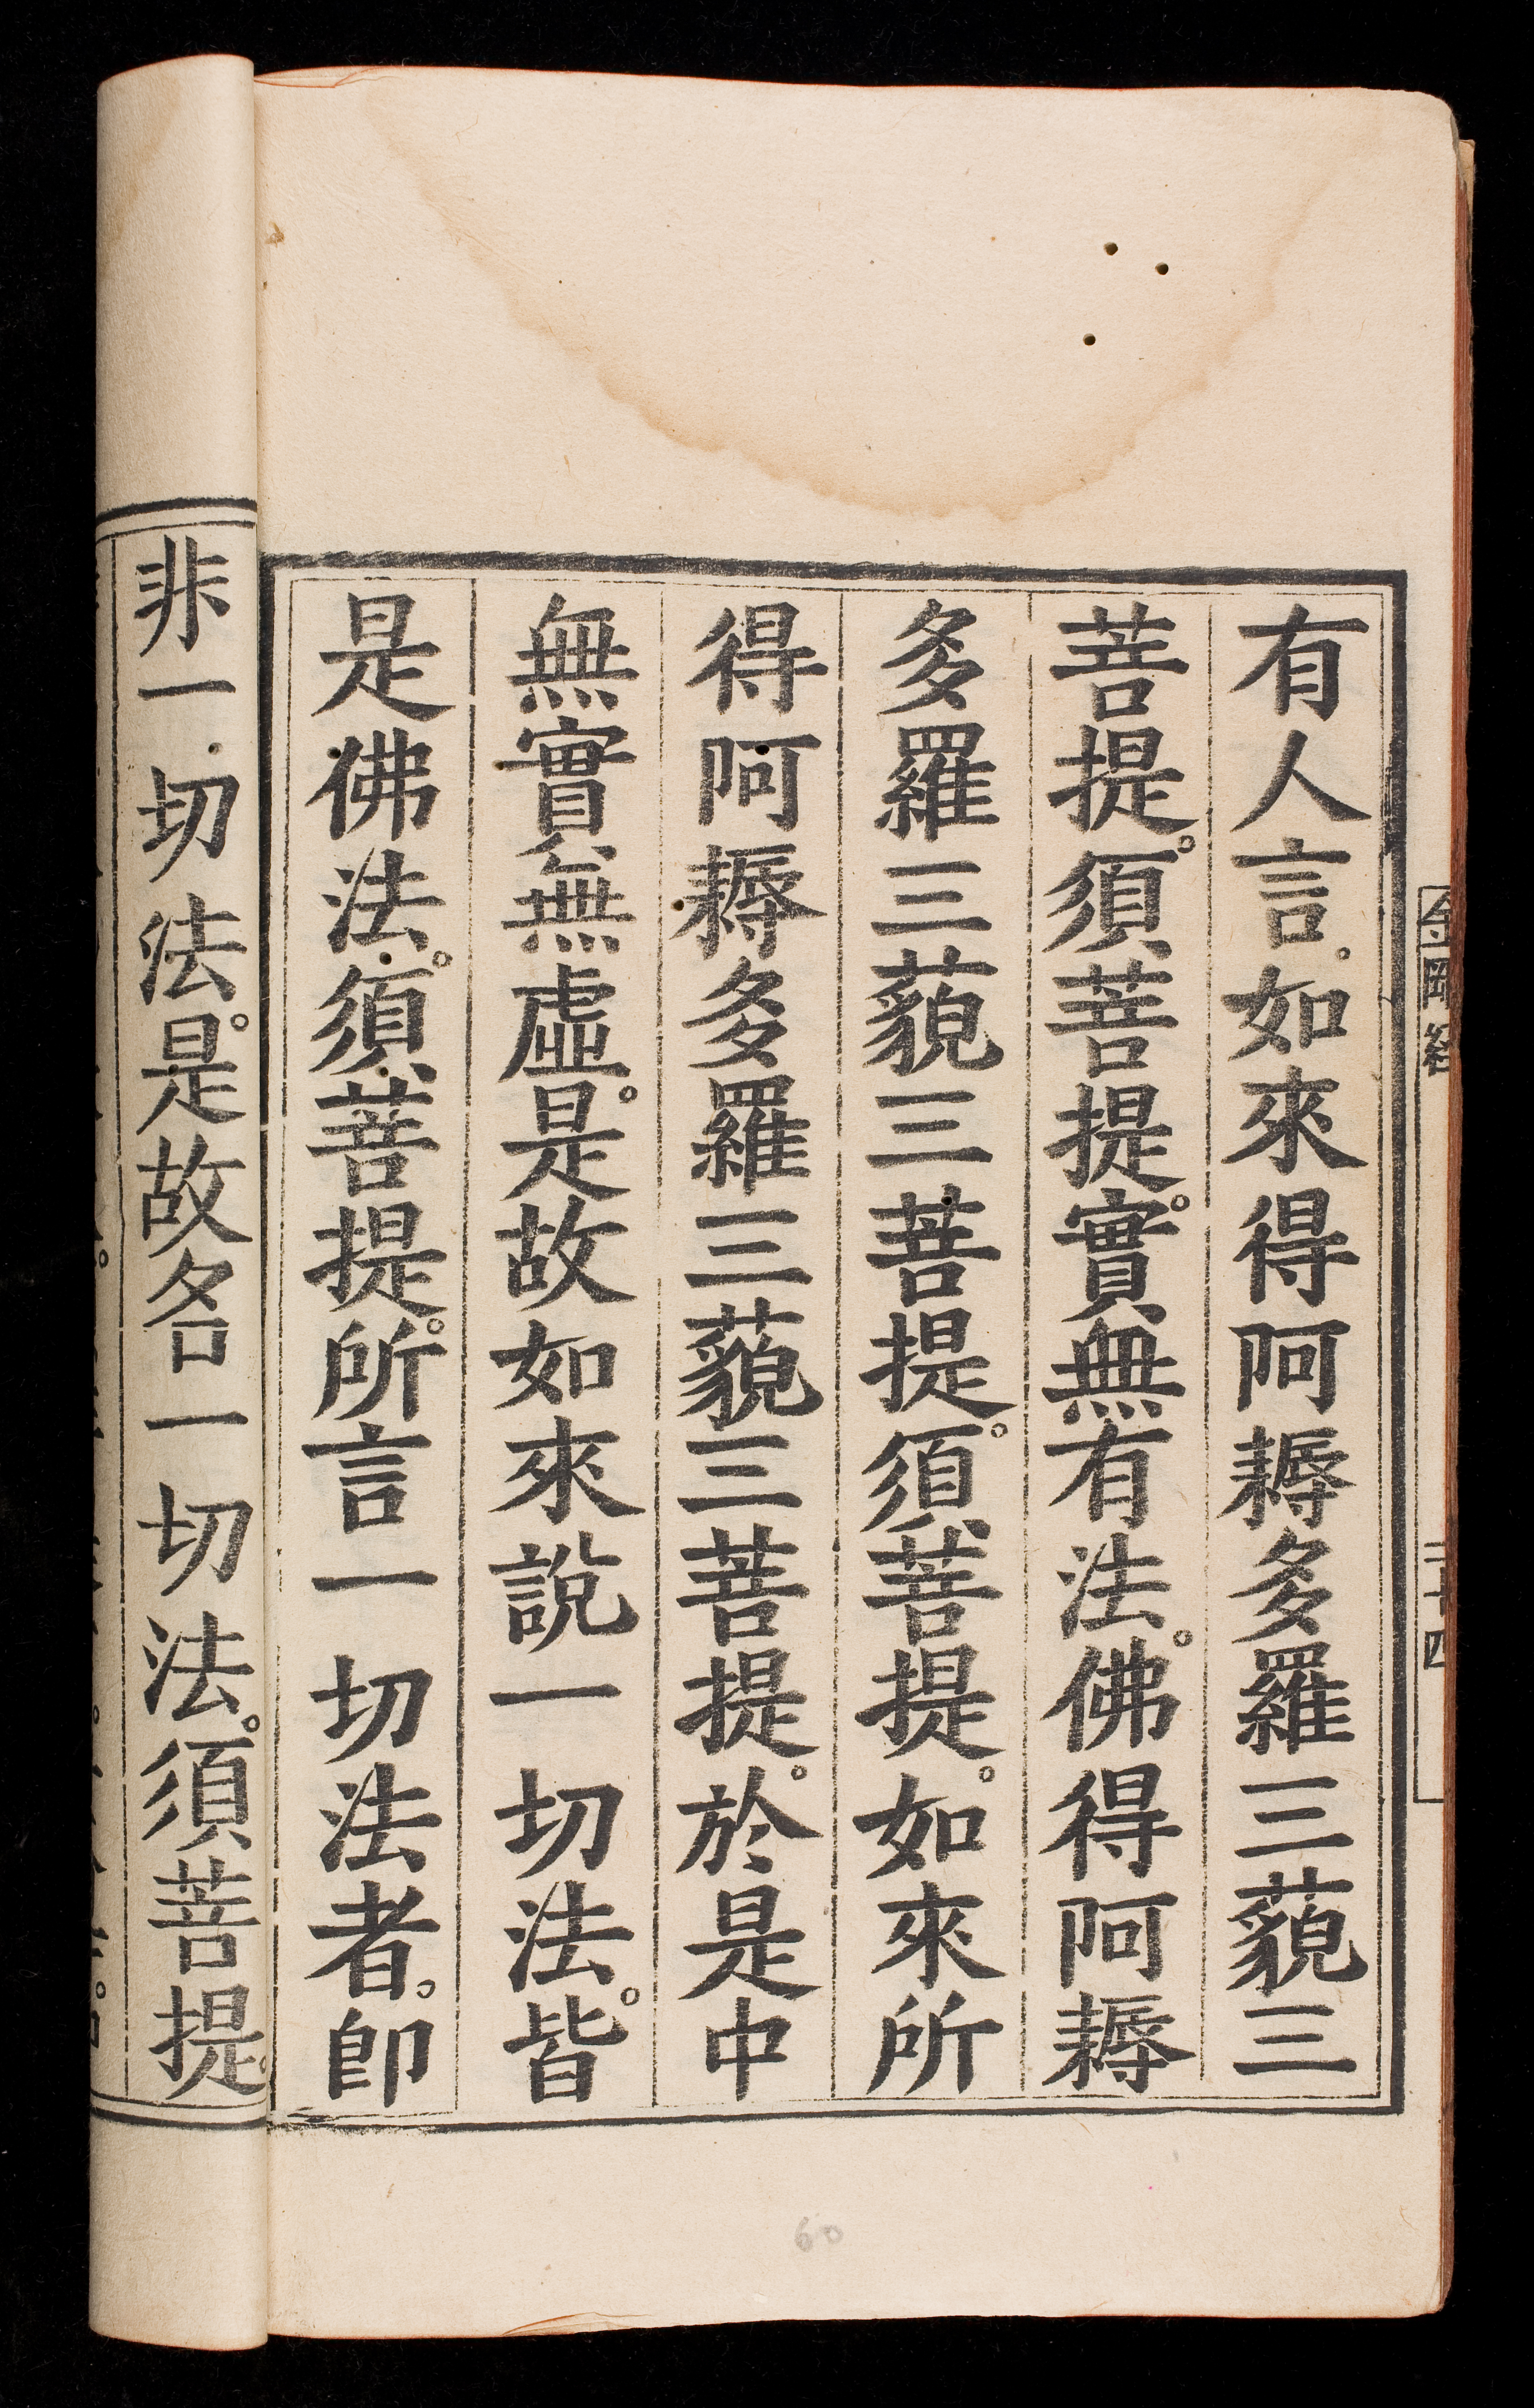 有人言。如來得阿耨多羅三藐三
菩提。須菩提。實無有法。佛得阿耨
多羅三藐三菩提。須菩提。如來所
得阿耨多羅三藐三菩提。於是中
無實無虛。是故如來說一切法。皆
是佛法。須菩提。所言一切法者。卽
非一切法。是故名一切法。須菩提。
金剛經
二十四
60